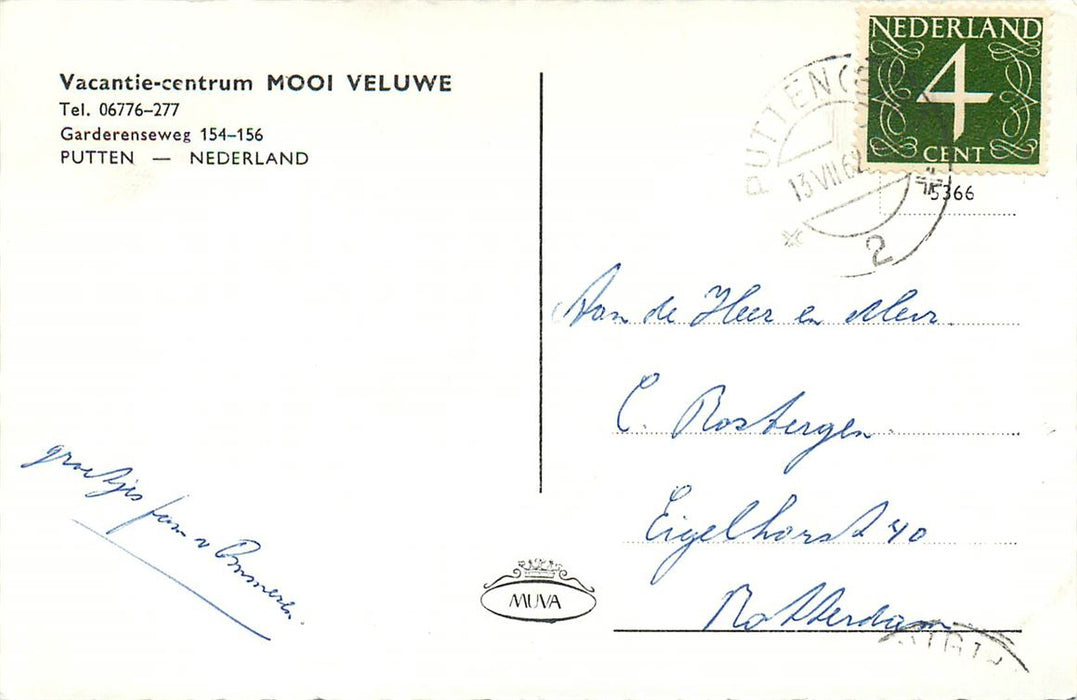 Vacantie-centrum MOOI VELUWE
Tel. 06776-277
Garderenseweg 154-156
PUTTEN — NEDERLAND
NEDERLAND
4
CENT
PUTTEN (G
13 VII 62
2
5366
Aan de Heer en Mevr.
C. Rostergen
Eigelhorst 40
Rotterdam
groetjes fam v Bmmeren.
MUVA